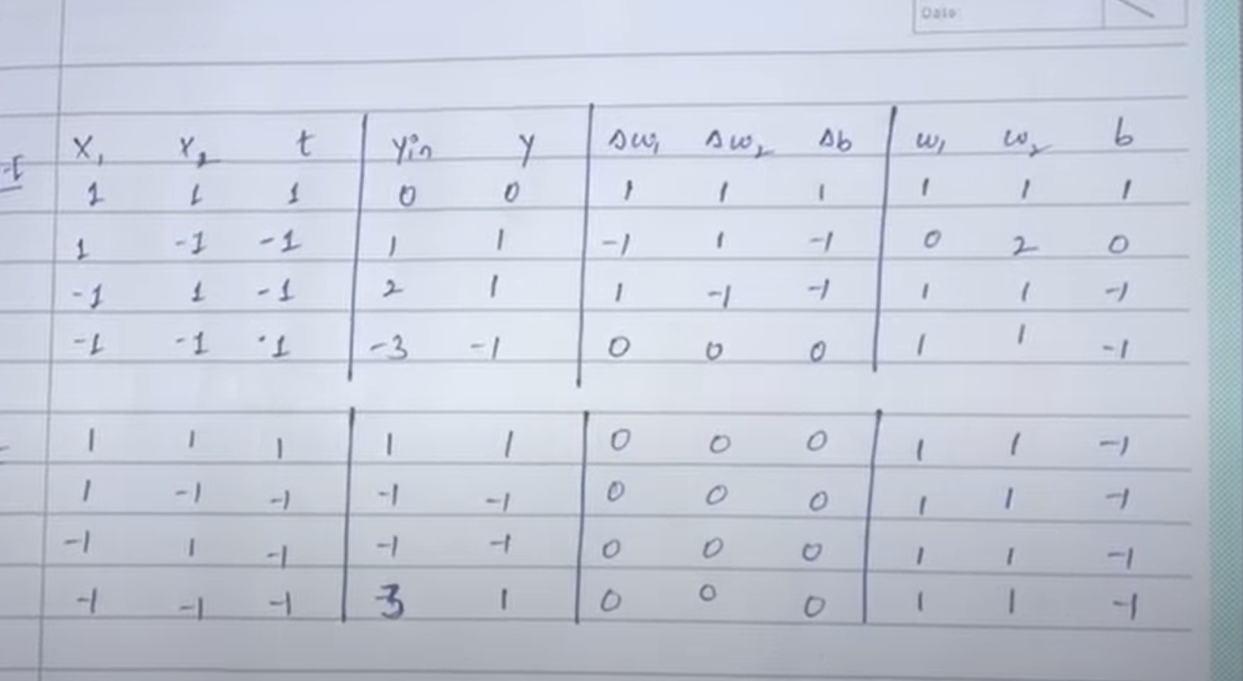 Date:
X₁ X₂ t Yin Y Δw₁ Δw₂ Δb w₁ w₂ b
1 1 1 0 0 1 1 1 1 1 1
1 -1 -1 1 1 -1 1 -1 0 2 0
-1 1 -1 2 1 1 -1 -1 1 1 -1
-1 -1 -1 -3 -1 0 0 0 1 1 -1
1 1 1 1 1 0 0 0 1 1 -1
1 -1 -1 -1 -1 0 0 0 1 1 -1
-1 1 -1 -1 -1 0 0 0 1 1 -1
-1 -1 -1 3 1 0 0 0 1 1 -1